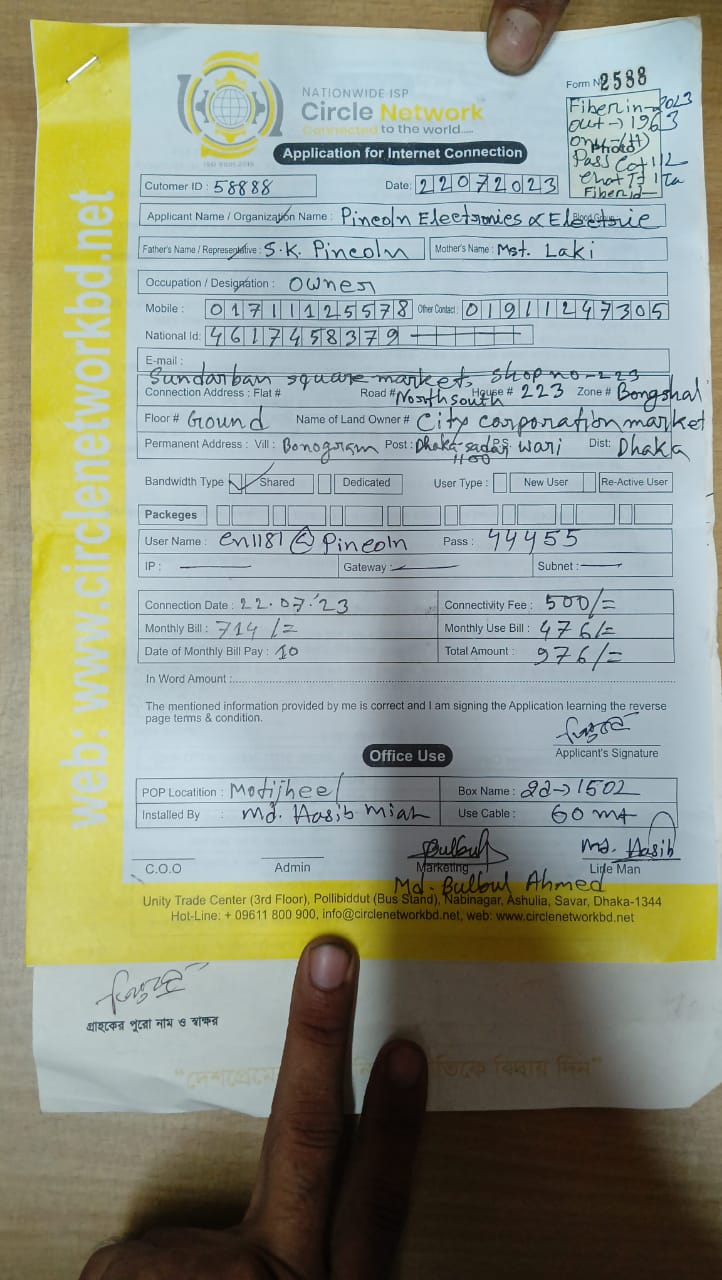 NATIONWIDE ISP
Circle Network
Connected to the world....
ISO 9001:2015
Form N 2588
Fiber in - 2023
out → 1963
Photo
Pass Cat 12
Fiber id -
Application for Internet Connection
Cutomer ID : 58888 Date: 22072023
Applicant Name / Organization Name : Pincoln Electronics & Electric
Blood Group
Father's Name / Representative : S.K. Pincoln Mother's Name : Mst. Laki
Occupation / Designation : Owner
Mobile : 01711125578 Other Contact : 01911247305
National Id: 4617458379
E-mail :
Sundarban square market, Shop no - 223
Connection Address : Flat # Road # North south House # 223 Zone # Bongshal
Floor # Ground Name of Land Owner # City corporation market
Permanent Address : Vill : Bonogram Post : Dhaka sadar 1100 P.S. wari Dist: Dhaka
Bandwidth Type Shared Dedicated User Type : New User Re-Active User
Packeges
User Name : cn1181 @ Pincoln Pass : 44455
IP : Gateway : Subnet :
Connection Date : 22.07.'23 Connectivity Fee : 500/=
Monthly Bill : 714/= Monthly Use Bill : 476/=
Date of Monthly Bill Pay : 10 Total Amount : 976/=
In Word Amount :
The mentioned information provided by me is correct and I am signing the Application learning the reverse
page terms & condition.
Applicant's Signature
Office Use
POP Locatition : Motijheel Box Name : 22→1502
Installed By : Md. Hasib Miah Use Cable : 60 mt
Bulbul Md. Hasib
C.O.O Admin Marketing Line Man
Md. Bulbul Ahmed
Unity Trade Center (3rd Floor), Pollibiddut (Bus Stand), Nabinagar, Ashulia, Savar, Dhaka-1344
Hot-Line: + 09611 800 900, info@circlenetworkbd.net, web: www.circlenetworkbd.net
web: www.circlenetworkbd.net
গ্রাহকের পুরো নাম ও স্বাক্ষর
"দেশপ্রেমে বিদায় দিন"